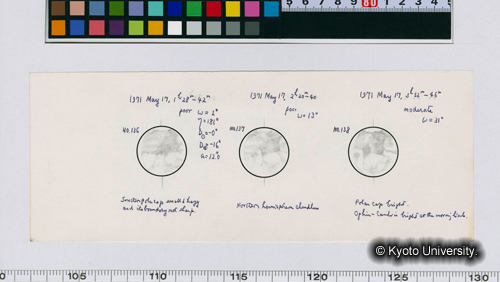 5 6 7 8 9 60 1 2 3 4 5
1971 May 17, 1h 28m-42m
poor
ω = 2°
η = 181°
D⊕ -0°
D☉ -16°
d = 12.0
no.136
Southern polar cap small & hazy
and its boundary not sharp
1971 May 17, 2h 20m-40
poor
ω = 13°
no.137
Northern hemisphere cloudless
1971 May 17, 3h 32m-46m
moderate
ω = 31°
no.138
Polar cap bright.
Ophir-Candor is bright at the morning limb.
© Kyoto University.
105 110 115 120 125 130